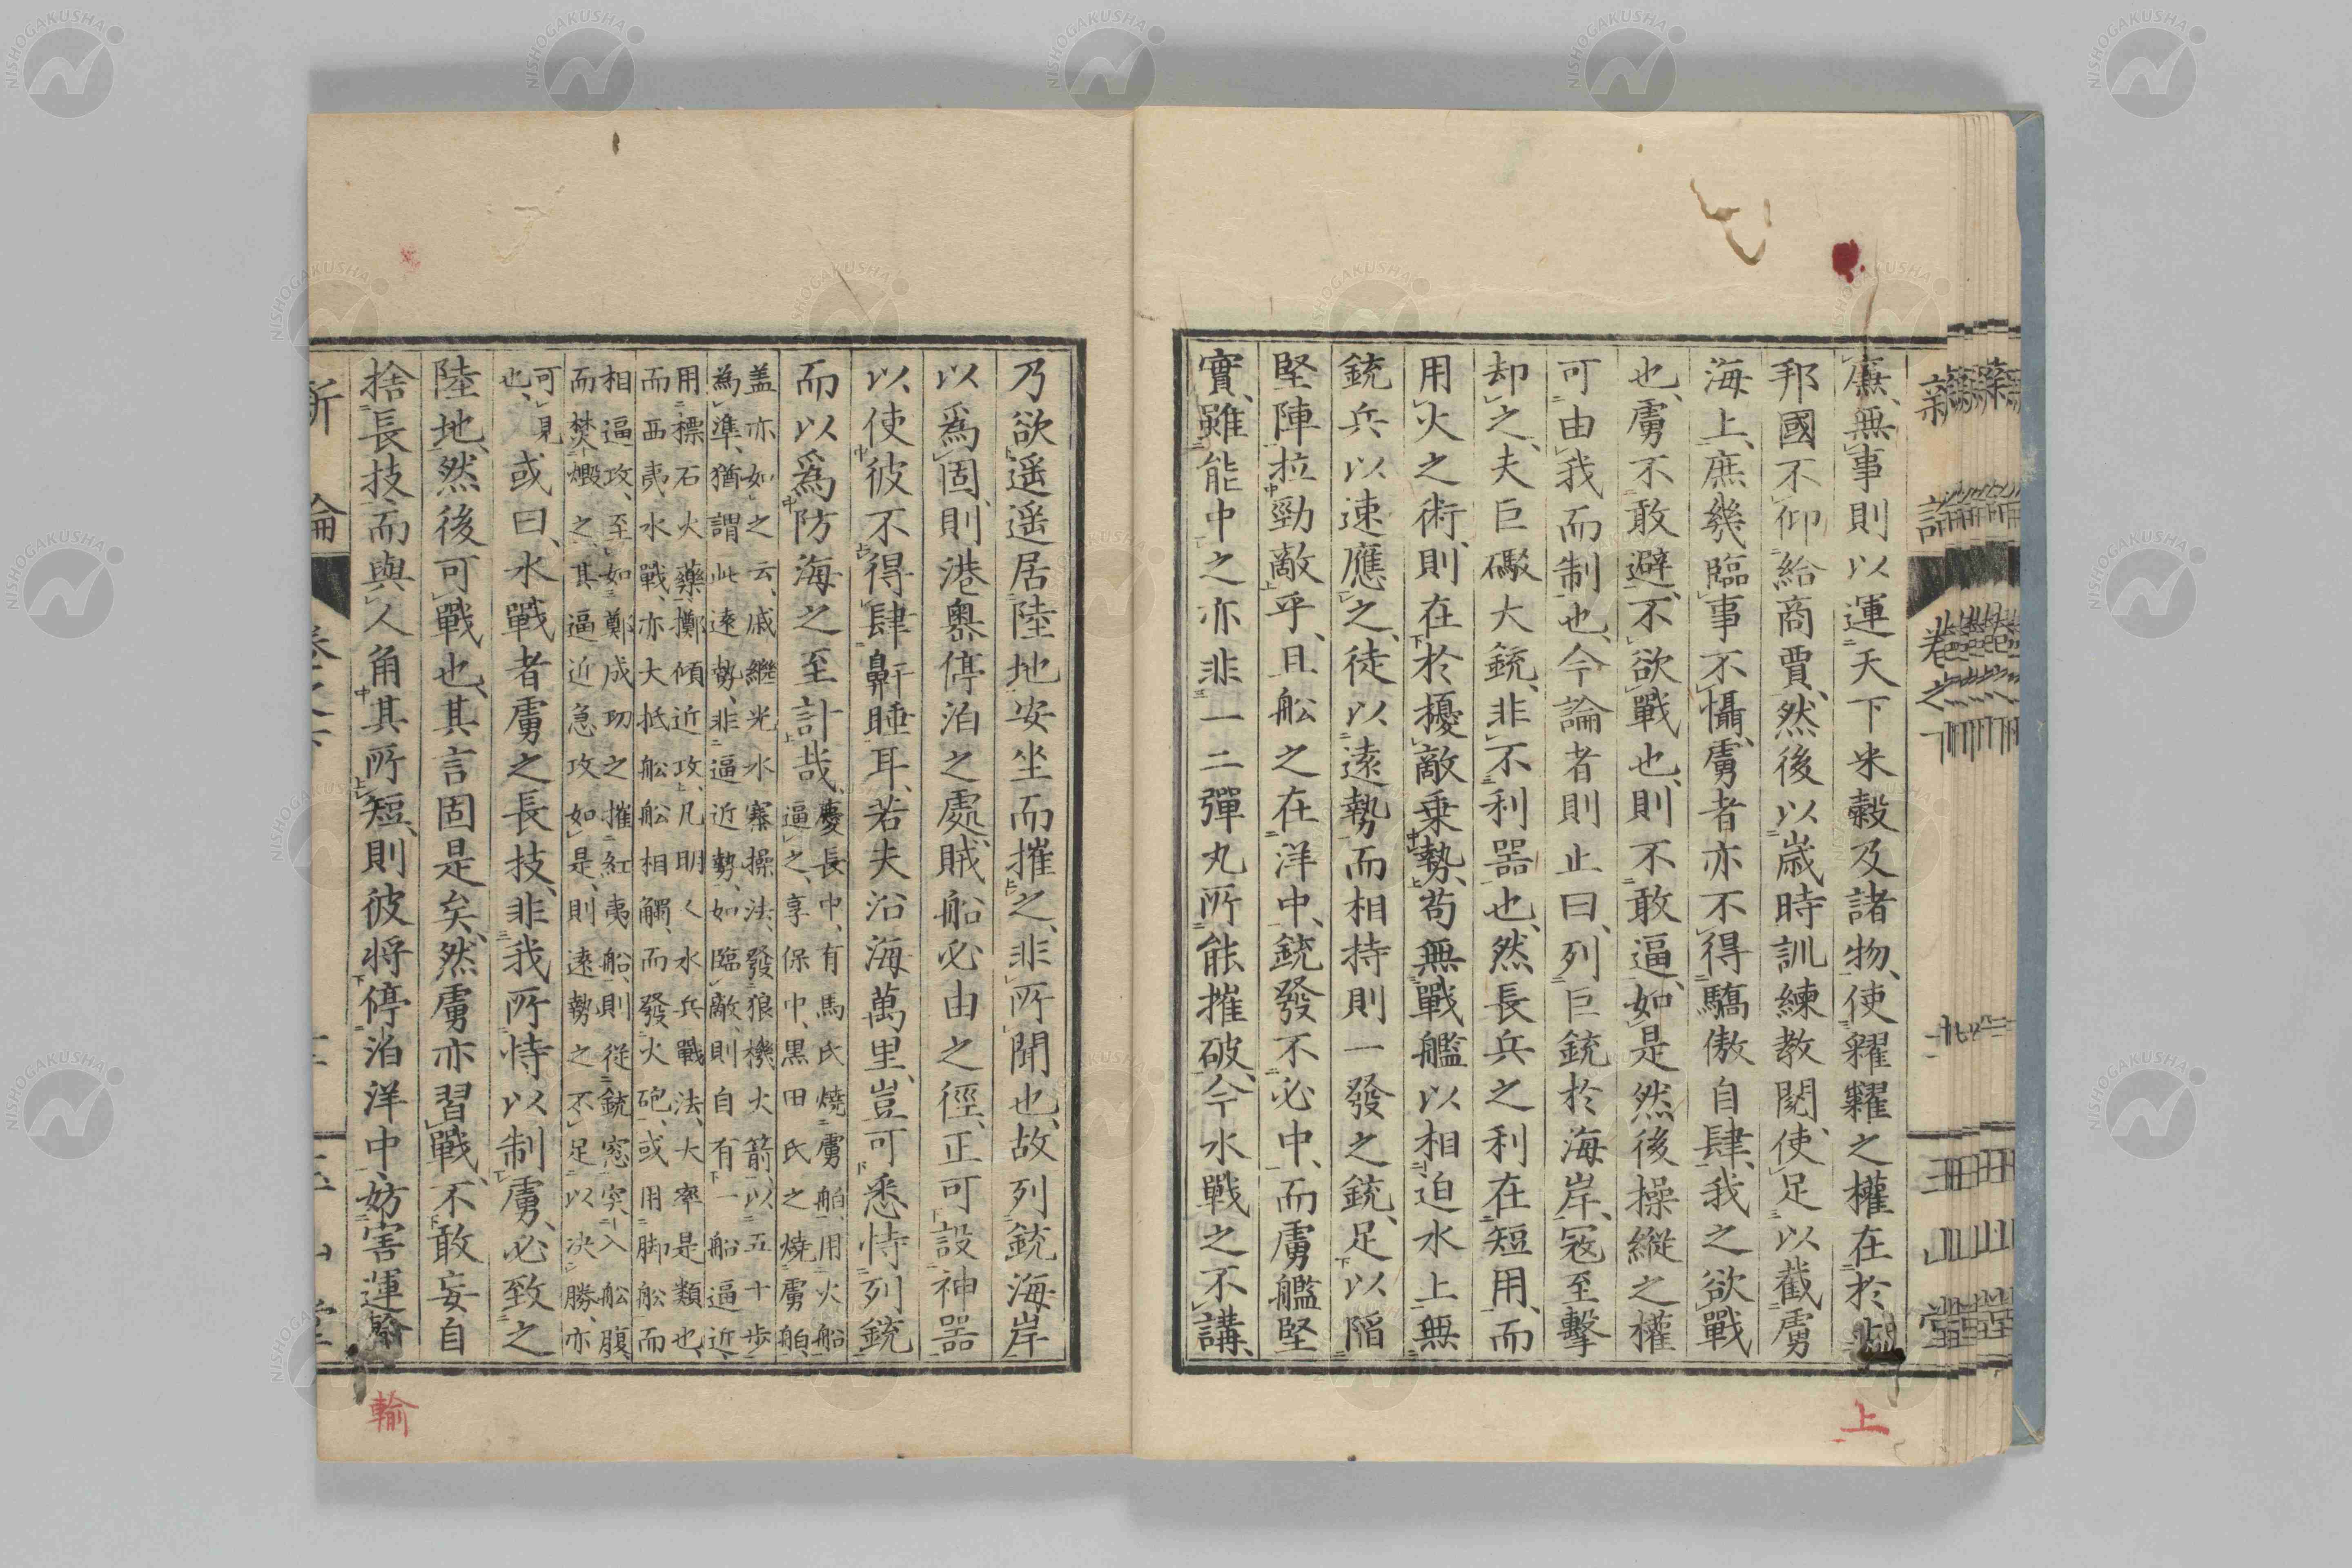 新論
卷之下
玉山堂
廡、無事則以運天下米穀及諸物、使糴糶之權在於
上
邦國不仰給商賈、然後以歳時訓練教閲、使足以截虜
海上、庶幾臨事不懾、虜者亦不得驕傲自肆、我之欲戰
也、虜不敢避、不欲戰也、則不敢逼、如是然後操縱之權
可由我而制也、今論者則止曰、列巨銃於海岸、寇至擊
却之、夫巨礮大銃、非不利器也、然長兵之利在短用、而
用火之術、則在於擾敵乗勢、苟無戰艦以相迫水上、無
銃兵以速應之、徒以遠勢而相持則一發之銃、足以陷
堅陣拉勁敵乎、且舩之在洋中、銃發不必中、而虜艦堅
實、雖能中之亦非一二彈丸所能摧破、今水戰之不講、
乃欲遥遥居陸地安坐而摧之、非所聞也、故列銃海岸
以爲固、則港奥停泊之處、賊船必由之徑、正可設神噐
以使彼不得肆鼾睡耳、若夫沿海萬里、豈可悉恃列銃
而以爲防海之至計哉、慶長中、有馬氏燒虜舶、用火船
逼之、享保中、黒田氏之燒虜舶、
盖亦如之云、戚繼光水寨操法、發狼機火箭、以五十歩
為準、猶謂此遠勢、非逼近勢、如臨敵、則自有一船逼近、
用標石火藥、擲傾近攻、凡明人水兵戰法、大率是類也、
而西夷水戰、亦大抵舩舩相觸、而發火砲、或用脚舩而
相逼攻、至如鄭成功之摧紅夷船、則從銃窓突入舩腹、
而焚燬之、其逼近急攻如是、則遠勢之不足以决勝、亦
可見
也、
或曰、水戰者虜之長技、非我所恃以制虜、必致之
陸地、然後可戰也、其言固是矣、然虜亦習戰、不敢妄自
捨長技、而與人角其所短、則彼將停泊洋中、妨害運
輸
新論
卷之下
玉山堂